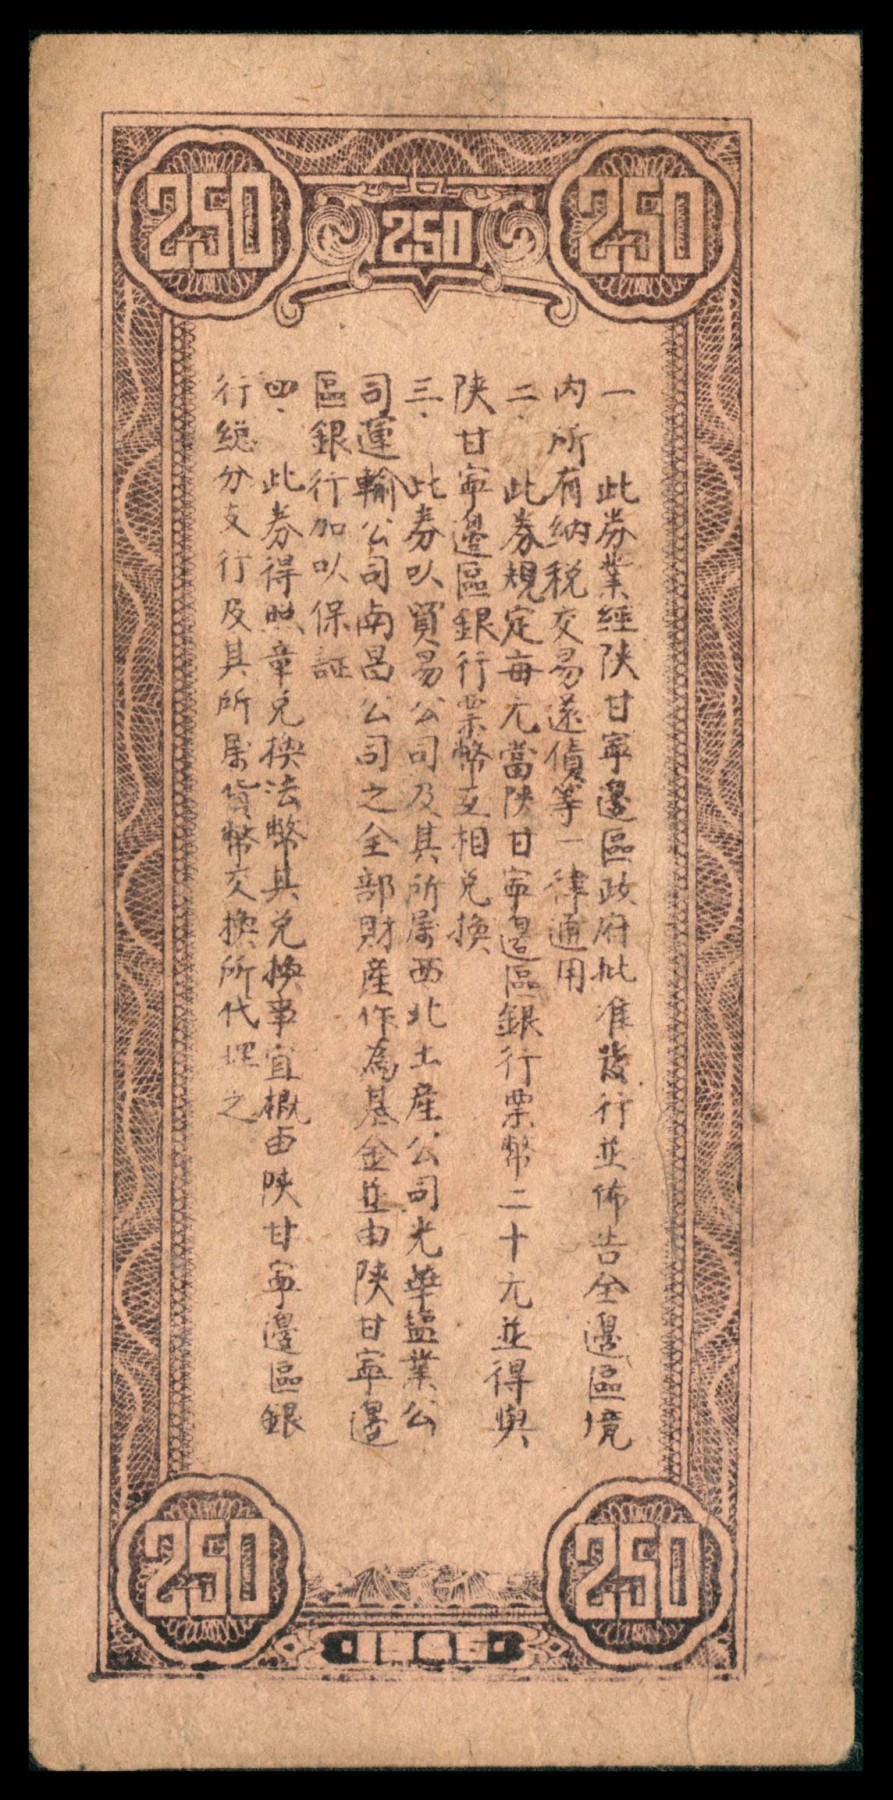 250
250
250
一．此券業經陝甘寧邊區政府批准發行並佈告全邊區境
內所有納税交易還債等一律通用
二．此券規定每元當陝甘寧邊區銀行票幣二十元並得與
陝甘寧邊區銀行票幣互相兌換
三．此券以貿易公司及其所屬西北土產公司光華鹽業公
司運輸公司南昌公司之全部財產作為基金並由陝甘寧邊
區銀行加以保証
四．此券得照章兌換法幣其兌換事宜概由陝甘寧邊區銀
行總分支行及其所屬貨幣交換所代理之
250
250